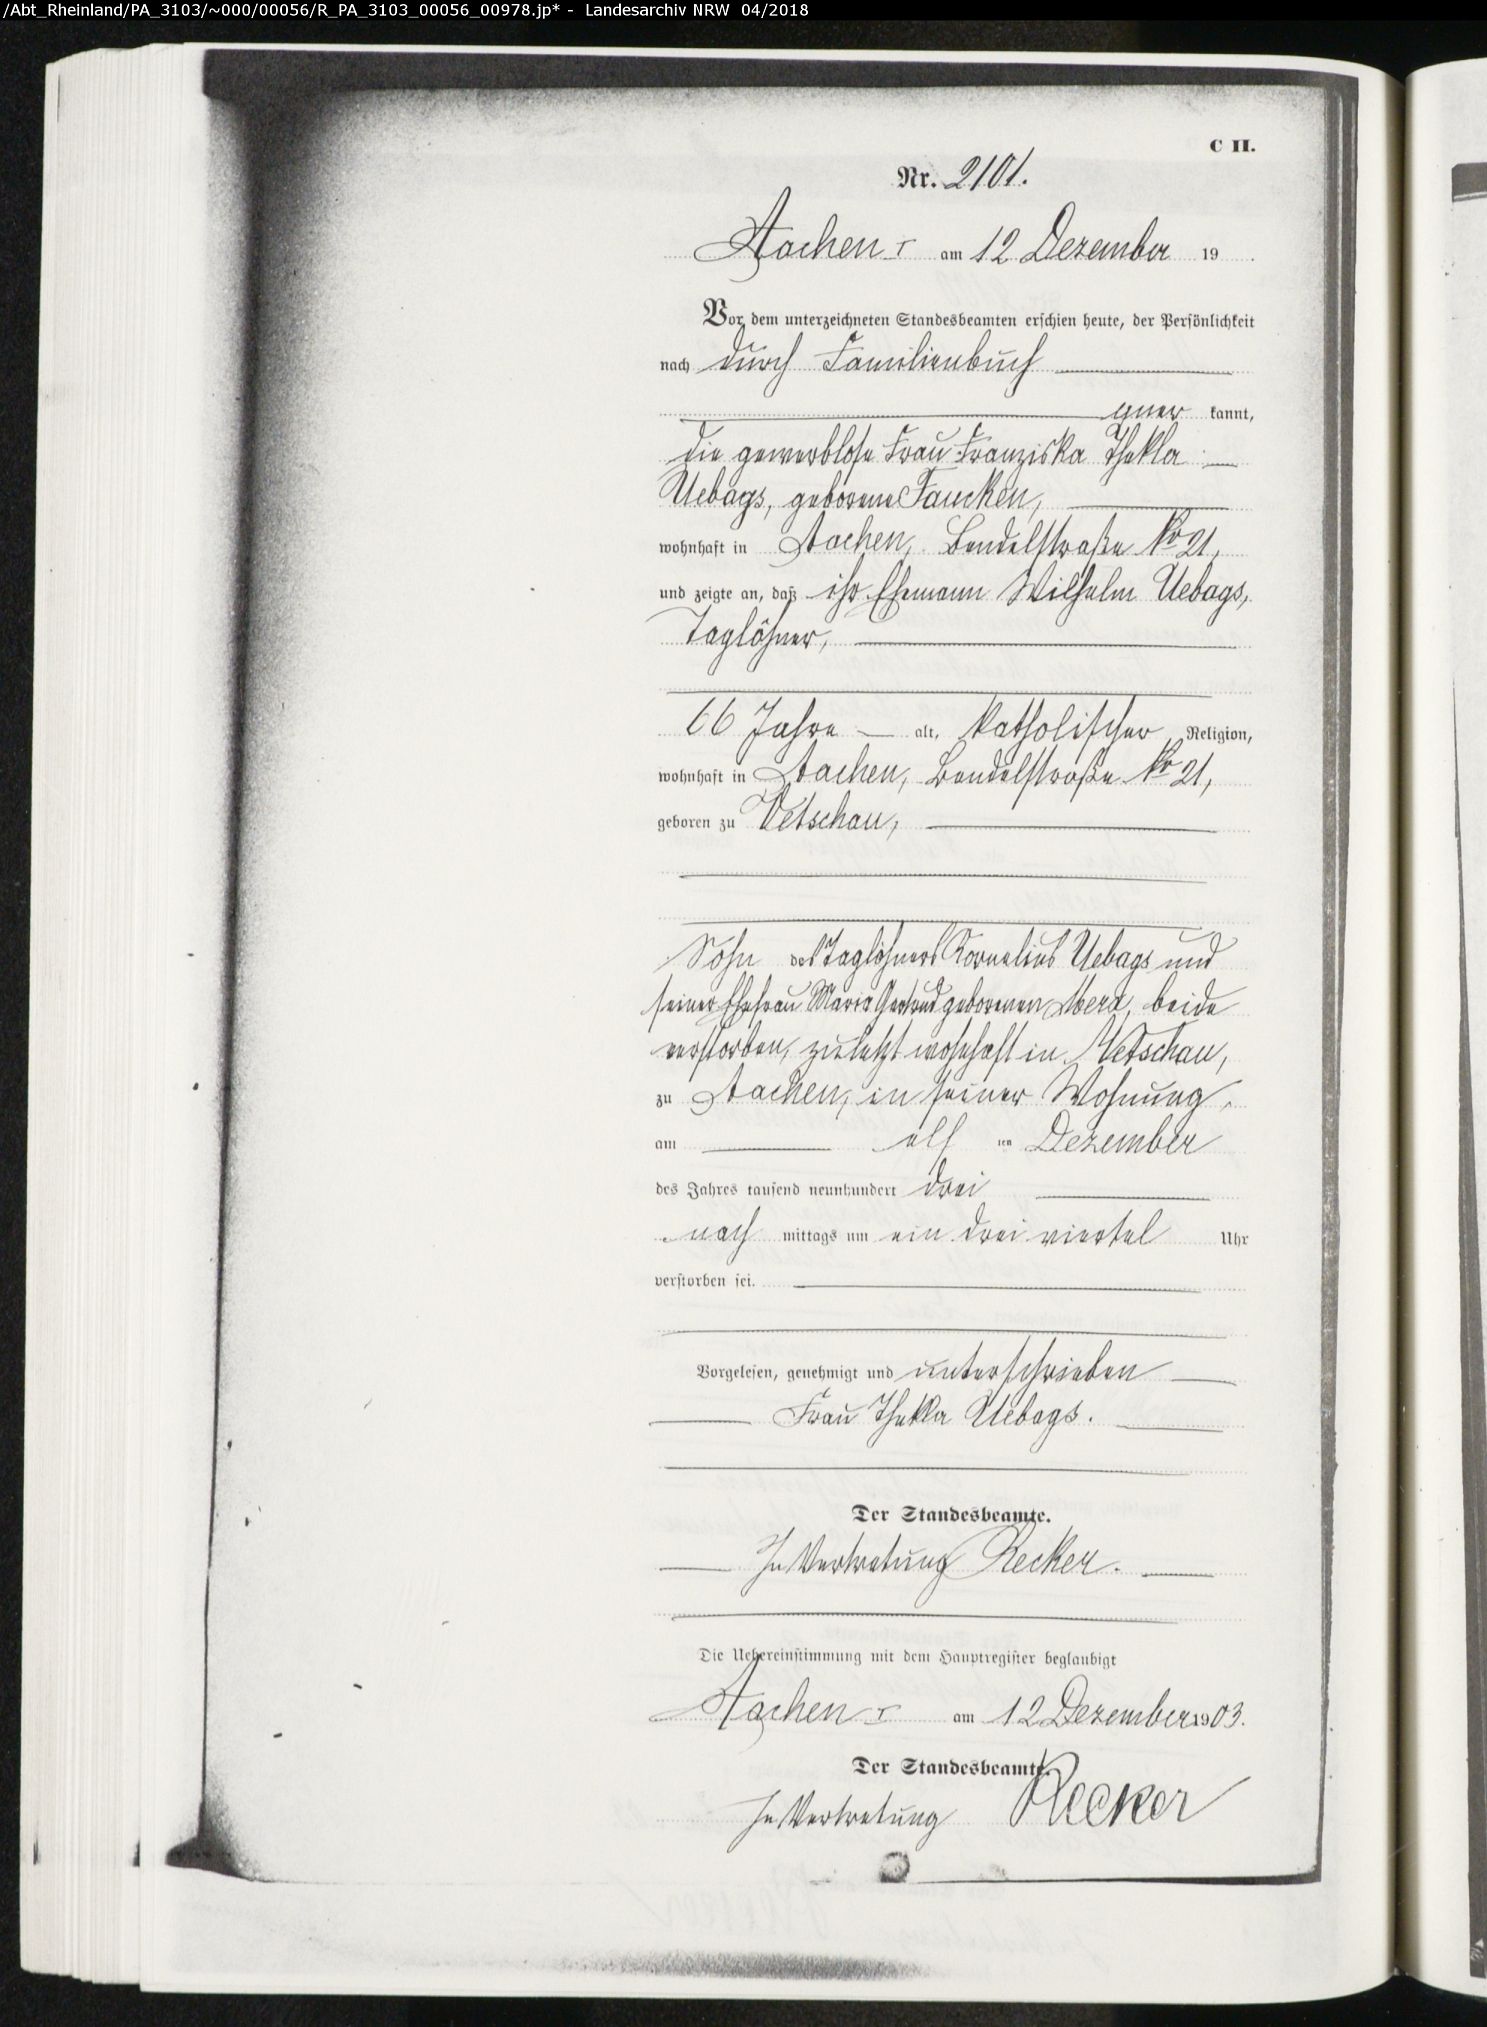 /Abt_Rheinland/PA_3103/~000/00056/R_PA_3103_00056_00978.jp* - Landesarchiv NRW 04/2018
C II.
Nr. 2101.
Aachen I am 12 Dezember 19
Vor dem unterzeichneten Standesbeamten erschien heute, der Persönlichkeit
nach durch Familienbuch
kannt,
die gewerblose Frau Franziska Thekla
Uebags, geborene Faucken,
wohnhaft in Aachen, Bendelstraße No 21,
und zeigte an, daß ihr Ehemann Wilhelm Uebags,
Taglöhner,
66 Jahre alt, katholischer Religion,
wohnhaft in Aachen, Bendelstraße No 21,
geboren zu Vetschau,
Sohn des Taglöhners Kornelius Uebags und
seiner Ehefrau Maria Gertrud geborenen beide
verstorben, zuletzt wohnhaft in Vetschau,
zu Aachen, in seiner Wohnung,
am elf ten Dezember
des Jahres tausend neunhundert drei
nach mittags um ein drei viertel Uhr
verstorben sei.
Vorgelesen, genehmigt und unterschrieben
Frau Thekla Uebags.
Der Standesbeamte.
In Vertretung Recker.
Die Uebereinstimmung mit dem Hauptregister beglaubigt
Aachen I am 12 Dezember 1903.
Der Standesbeamte.
In Vertretung Recker